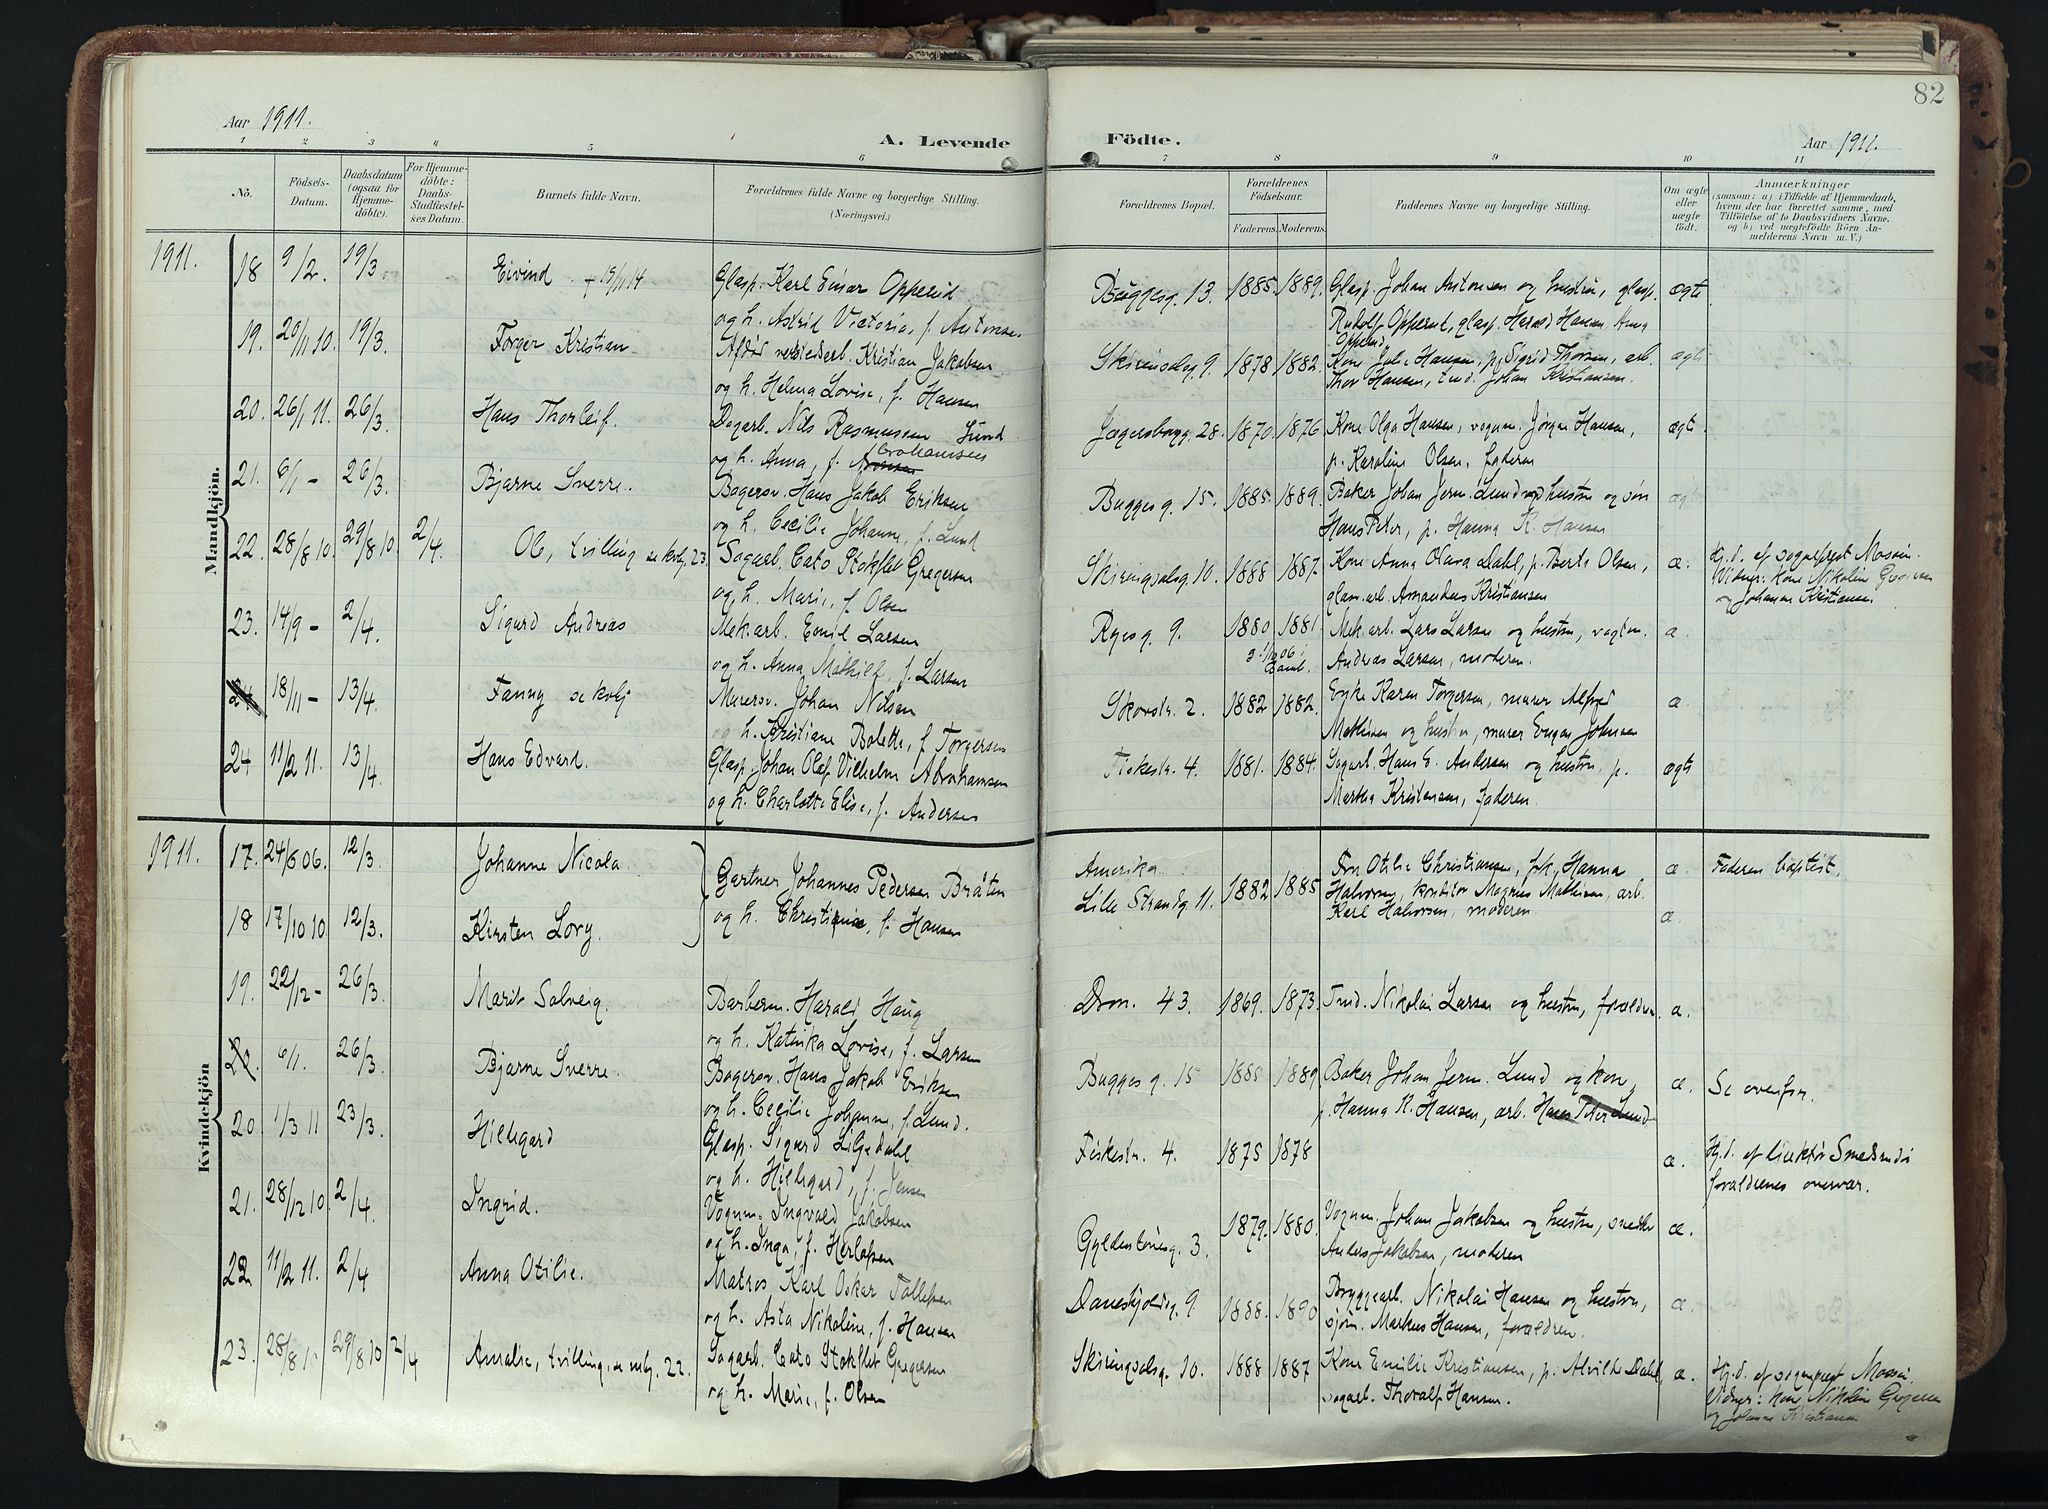 82
Aar 1911.
A. Levende Födte.
Aar 1911.
1 2 3 4 5 6 7 8 9 10 11
No. Födsels-Datum. Daabsdatum (ogsaa for Hjemmedöbte). For Hjemmedöbte: Daabs-Stadfæstelses Datum. Barnets fulde Navn. Forældrenes fulde Navne og borgerlige Stilling. (Næringsvei.) Forældrenes Bopæl. Forældrenes Födselsaar. Faderens. Moderens. Faddernes Navne og borgerlige Stilling. Om ægte eller uægte födt. Anmærkninger (saasom: a) i Tilfælde af Hjemmedaab, hvem der har forrettet samme, med Tilföielse af to Daabsvidners Navne. og b) ved uægtefödte Börn Anmelderens Navn m. V.)
Mandkjön.
1911. 18 9/2. 19/3 Eivind + 15/11 14 Glasp. Karl Einar Opperud Buggesg. 13. 1885. 1889. Glasp. Johan Antonsen og hustru, glasp. ægte
og h. Astrid Victoria, f. Antonsen. Rudolf Opperud, glasp. Harald Hansen. Anna Opperud
19. 20/11 10. 19/3. Torger Kristian Afdøde verkstedarb. Kristian Jakobsen Skiringsalsg. 9. 1878 1882. Kone Julie Hansen, p. Sigrid Thorsen, arb. ægte
og h. Helena Lovise, f. Hansen Thor Hansen, tmd. Johan Kristiansen.
20. 26/1 11. 26/3. Hans Thorleif. Dagarb. Nils Rasmussen Lund Jægersborgg. 28. 1870. 1876. Kone Olga Hansen, vognm. Jørgen Hansen, ægte
og h. Anna, f. Grohansen p. Karoline Olsen, faderen
21. 6/1 - 26/3. Bjarne Sverre. Bagersv. Hans Jakob Eriksen Buggesg. 15. 1885. 1889. Baker Johan Jerm. Lund og hustru og søn ægte
og h. Cecilie Johanne, f. Lund Hans Peter, p. Hanna K. Hansen
22. 28/8 10. 29/8 10. 2/4. Ole, tvilling se kvkj. 23. Sagarb. Cato Stokflet Gregersen Skiringsalsg. 10. 1888 1887. Kone Anna Olava Dahl, p. Berte Olsen, æ. Hj.d. af sogneprest Mossin.
og h. Marie, f. Olsen glasm.arb. Amandus Kristiansen Vidner: Kone Nikoline Gregersen og Johanne Kristiansen.
23. 14/9 - 2/4. Sigurd Andreas Mek.arb. Emil Larsen Ryesg. 9. 1880 1881. Mek.arb. Lars Larsen og hustru, vogtm. æ.
og h. Anna Mathilde, f. Larsen Andreas Larsen, moderen.
24 18/11 - 13/4. Fanny se kvkj Murersv. Johan Nilsen Skovstr. 2. 1882 1882. Enke Karen Torgersen, murer Alfred æ
og h. Kristiane Bolette, f. Torgersen Mathisen og hustru, murer Johnsen
24 11/2 11. 13/4. Hans Edvard. Glasp. Johan Olaf Vilhelm Abrahamsen Fiskestr. 4. 1881. 1884. Sagarb. Hans E. Andersen og hustru, p. ægte
og h. Charlotte Elise, f. Andersen Martha Kristensen, faderen.
Kvindekjön
1911. 17. 24/5 06. 12/3. Johanne Nicola Gartner Johannes Pedersen Bråten Amerika. 1882 1885 Fru Otilie Christiansen, frk. Hanna æ Faderen baptist.
18 17/10 10 12/3. Kirsten Lovy. og h. Christiane, f. Hansen Lille Strandg. 11. Halvorsen, konditor Magnus Mathisen, arb. Karl Halvorsen, moderen æ.
19. 22/12 - 26/3. Marit Solveig. Barberm. Harald Haug Dron. 43. 1869. 1873. Tmd. Nikolai Larsen og hustru, forældrene æ.
og h. Katinka Lovise, f. Larsen
20. 6/1. 26/3. Bjarne Sverre. Bagersv. Hans Jakob Eriksen Buggesg. 15 1885 1889 Baker Johan Jerm. Lund og kone, æ Se ovenfor.
og h. Cecilie Johanne, f. Lund. p. Hanna K. Hansen, arb. Hans Peter Lund
20. 1/3 11 23/3. Hildegard Glasp. Sigurd Liljedahl Fiskestr. 4. 1875 1878 æ. Hj.d. af direktør
og h. Hildegard, f. Jensen forældrenes overvær.
21. 28/12 10 2/4. Ingrid. Vognm. Ingvald Jakobsen Gyldenløvesg. 3. 1879. 1880. Vognm. Johan Jakobsen og hustru, snedker æ.
og h. Inga, f. Herlofsen Anders Jakobsen, moderen
22. 11/2 11. 2/4 Anna Otilie. Matros Karl Oskar Tollefsen Daneskjoldsg. 9. 1888. 1890 Bryggearb. Nikolai Hansen og hustru, æ.
og h. Asta Nikoline, f. Hansen sjøm. Markus Hansen, forældrene.
23. 28/8 10 29/8 10 2/4 Amalie, tvilling, se mkj. 22. Sagarb. Cato Stokflet Gregersen Skiringsalsg. 10. 1888 1887 Kone Emilie Kristiansen, p. Alvilde Dahl, æ. Hj.d. af sogneprest Mossin.
og h. Marie, f. Olsen sagarb. Thoralf Hansen. Vidner: Kone Nikoline Gregersen og Johanne Kristiansen